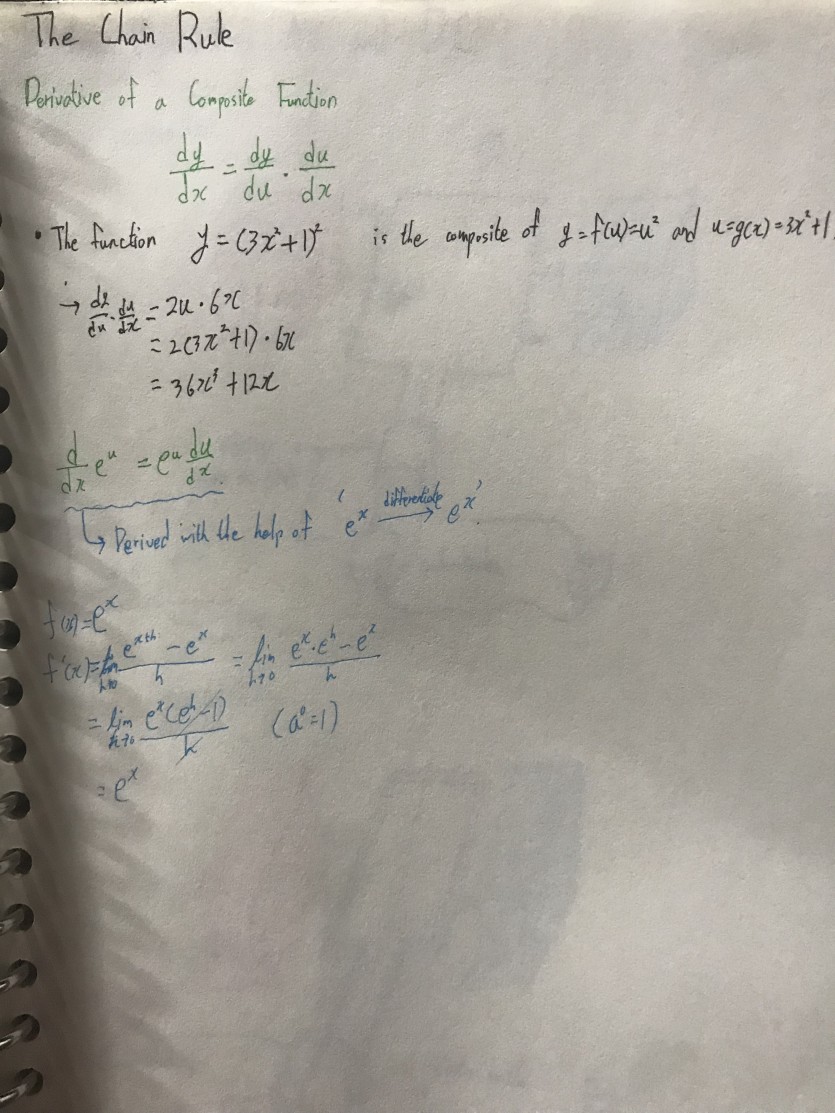 The Chain Rule
Derivative of a Composite Function
dy/dx = dy/du · du/dx
• The function y = (3x²+1)² is the composite of y = f(u) = u² and u = g(x) = 3x²+1.
→ dy/du · du/dx = 2u · 6x
= 2(3x²+1) · 6x
= 36x³ + 12x
d/dx eᵘ = eᵘ du/dx.
↳ Derived with the help of 'eˣ differentiate → eˣ'.
f(x) = eˣ
f'(x) = lim h→0 (eˣ⁺ʰ - eˣ)/h = lim h→0 (eˣ·eʰ - eˣ)/h
= lim h→0 eˣ(eʰ-1)/h (a⁰=1)
= eˣ